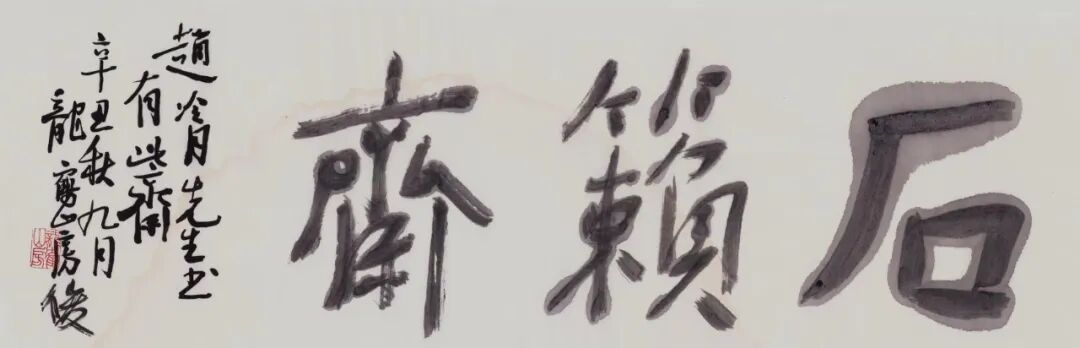 石籟齋
趙冷月先生书
有此齋
辛丑秋九月
龍山房俊